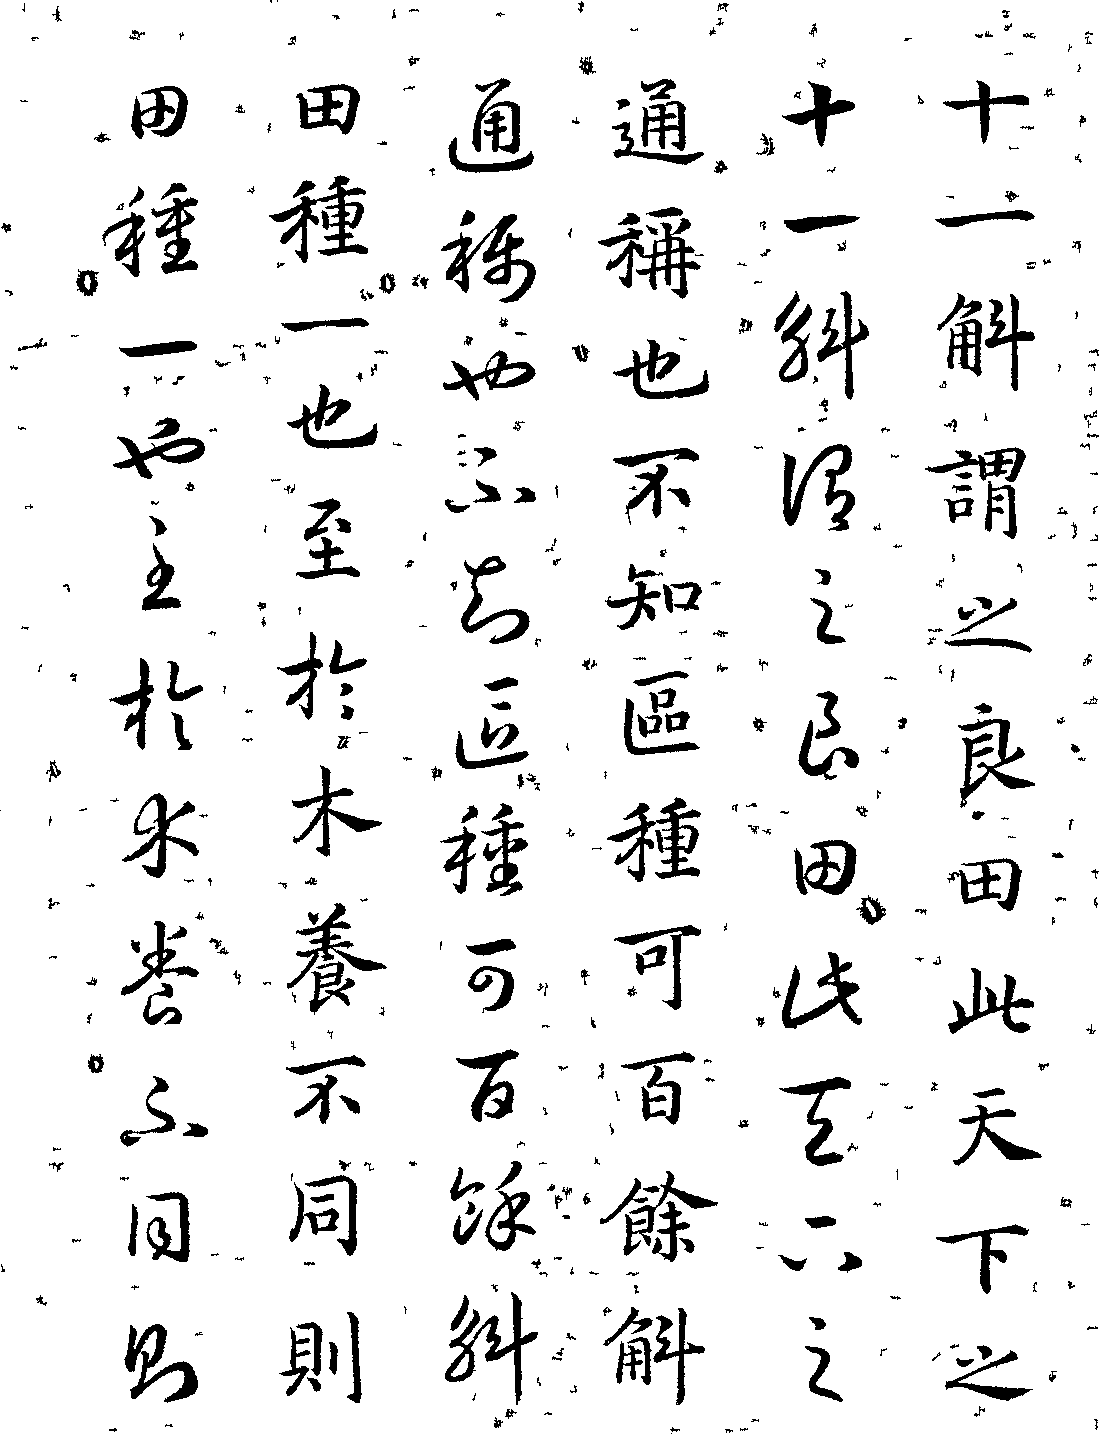 十一斛謂之良田此天下之
十一斛謂之良田此天下之
通稱也不知區種可百餘斛
通稱也不知區種可百餘斛
田種一也至於木養不同則
田種一也至於木養不同則